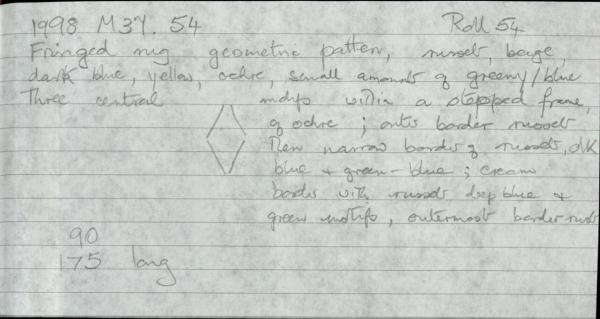 1998 M37. 54 Roll 54
Fringed rug geometric pattern, russet, beige,
dark blue, yellow, ochre, small amounts of greeny/blue
Three central motifs within a stepped frame,
of ochre; outer border russet
Then narrow border of russet, dk
blue + green-blue; cream
border with russet deep blue +
green motifs, outermost border
90
175 long